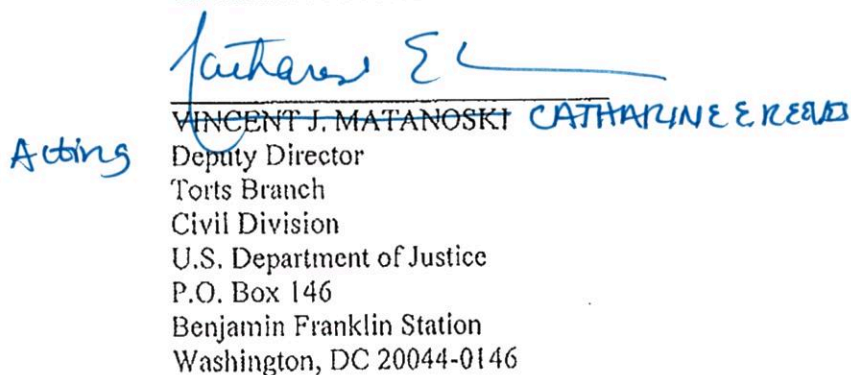 VINCENT J. MATANOSKI CATHARINE E REEVES
Acting Deputy Director
Torts Branch
Civil Division
U.S. Department of Justice
P.O. Box 146
Benjamin Franklin Station
Washington, DC 20044-0146